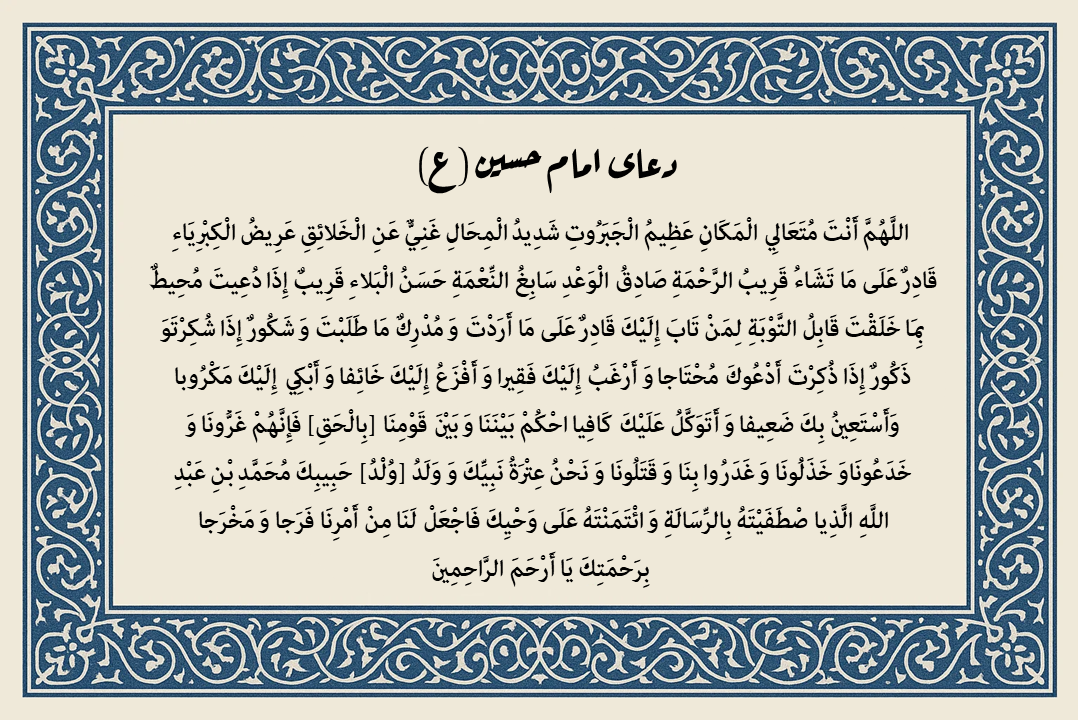 دعای امام حسین (ع)
اللَّهُمَّ أَنْتَ مُتَعَالِي الْمَكَانِ عَظِيمُ الْجَبَرُوتِ شَدِيدُ الْمِحَالِ غَنِيٌّ عَنِ الْخَلائِقِ عَرِيضُ الْكِبْرِيَاءِ
قَادِرٌ عَلَى مَا تَشَاءُ قَرِيبُ الرَّحْمَةِ صَادِقُ الْوَعْدِ سَابِغُ النِّعْمَةِ حَسَنُ الْبَلاءِ قَرِيبٌ إِذَا دُعِيتَ مُحِيطٌ
بِمَا خَلَقْتَ قَابِلُ التَّوْبَةِ لِمَنْ تَابَ إِلَيْكَ قَادِرٌ عَلَى مَا أَرَدْتَ وَ مُدْرِكٌ مَا طَلَبْتَ وَ شَكُورٌ إِذَا شُكِرْتَوَ
ذَكُورٌ إِذَا ذُكِرْتَ أَدْعُوكَ مُحْتَاجا وَ أَرْغَبُ إِلَيْكَ فَقِيرا وَ أَفْزَعُ إِلَيْكَ خَائِفا وَ أَبْكِي إِلَيْكَ مَكْرُوبا
وَأَسْتَعِينُ بِكَ ضَعِيفا وَ أَتَوَكَّلُ عَلَيْكَ كَافِيا احْكُمْ بَيْنَنَا وَ بَيْنَ قَوْمِنَا [بِالْحَقِ] فَإِنَّهُمْ غَرُّونَا وَ
خَدَعُونَاوَ خَذَلُونَا وَ غَدَرُوا بِنَا وَ قَتَلُونَا وَ نَحْنُ عِتْرَةُ نَبِيِّكَ وَ وَلَدُ [وُلْدُ] حَبِيبِكَ مُحَمَّدِ بْنِ عَبْدِ
اللَّهِ الَّذِيا صْطَفَيْتَهُ بِالرِّسَالَةِ وَ ائْتَمَنْتَهُ عَلَى وَحْيِكَ فَاجْعَلْ لَنَا مِنْ أَمْرِنَا فَرَجا وَ مَخْرَجا
بِرَحْمَتِكَ يَا أَرْحَمَ الرَّاحِمِينَ